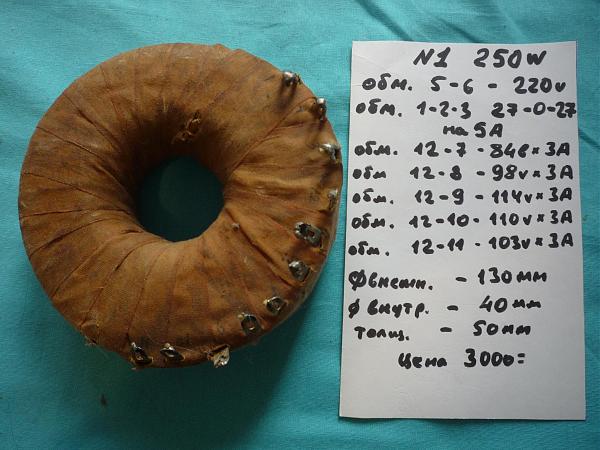 N1 250W
обм. 5-6 - 220v
обм. 1-2-3 27-0-27
на 5А
обм. 12-7-84в×3А
обм 12-8-98v×3А
обм. 12-9-114v×3А
обм. 12-10-110v×3А
обм. 12-11-103v×3А
φвнешн. - 130мм
φвнутр. - 40мм
толщ. - 50мм
Цена 3000=